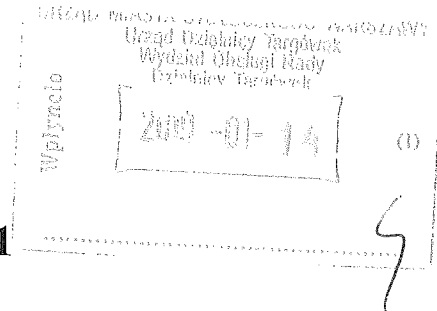 URZĄD MIASTA STOŁECZNEGO WARSZAWY
Urząd Dzielnicy Targówek
Wydział Obsługi Rady
Dzielnicy Targówek
Wpłynęło
-01- 14
(1)